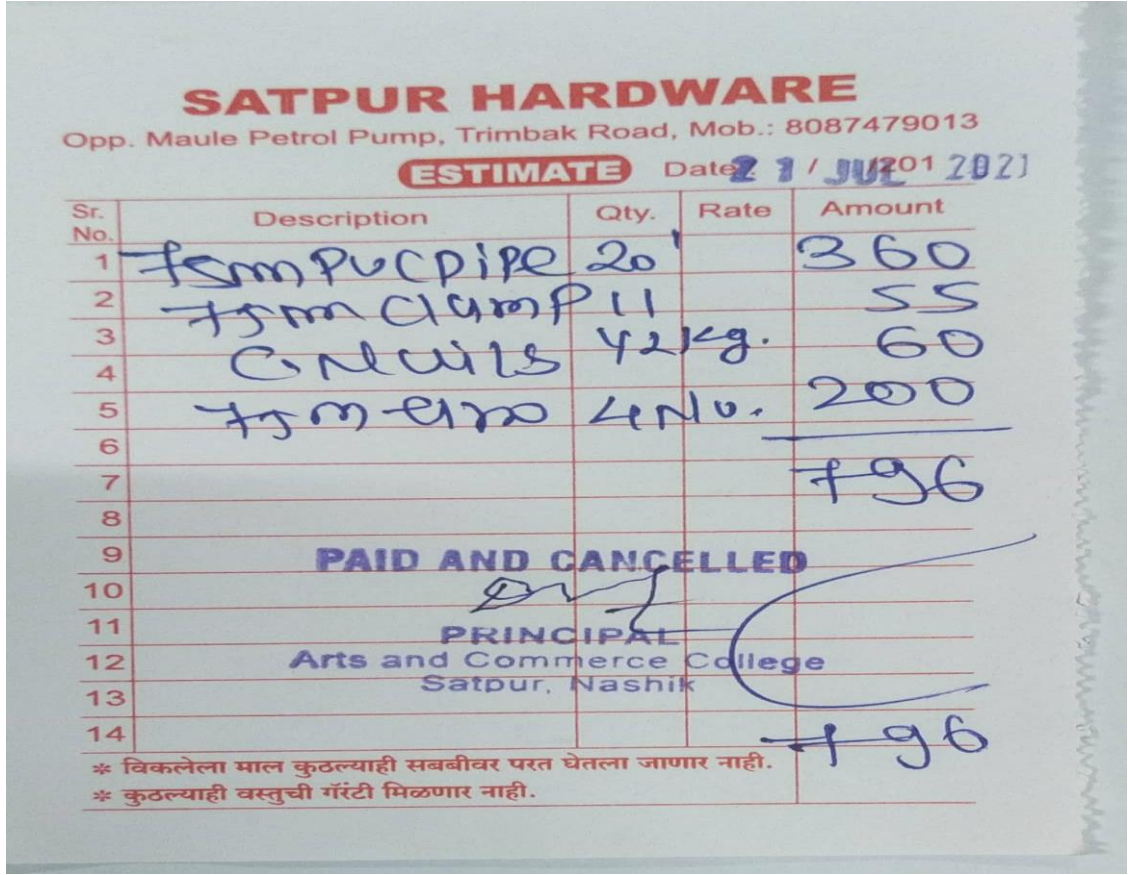 SATPUR HARDWARE
Opp. Maule Petrol Pump, Trimbak Road, Mob.: 8087479013
ESTIMATE Date: 21 / JUL /201 2021
Sr. No. Description Qty. Rate Amount
1 75mm PVC PIPE 20' 360
2 75mm Clamp 11 55
3 42 Kg. 60
4
5 75m 4 No. 200
6
7 796
8
9 PAID AND CANCELLED
10
11 PRINCIPAL
12 Arts and Commerce College
13 Satpur, Nashik
14 796
* विकलेला माल कुठल्याही सबबीवर परत घेतला जाणार नाही.
* कुठल्याही वस्तुची गॅरंटी मिळणार नाही.